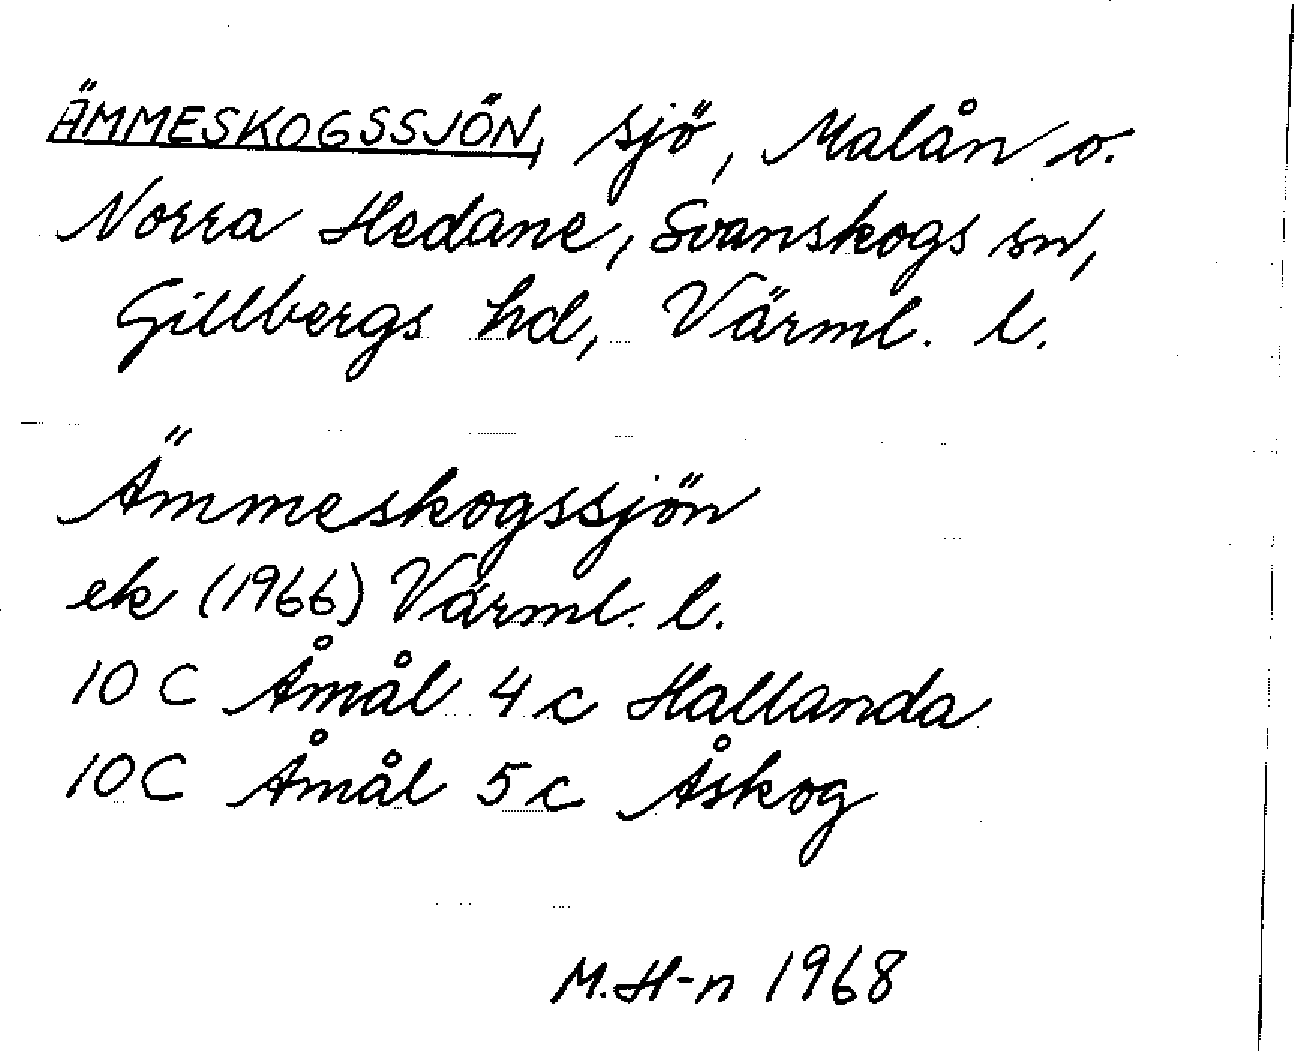 ÄMMESKOGSSJÖN, sjö, Malån o.
Norra Hedane, Svanskogs sn,
Gillbergs hd, Värml. l.
Ämmeskogssjön
ek (1966) Värml. l.
10 C Åmål 4 c Hallanda
10C Åmål 5 c Åskog
M.H-n 1968